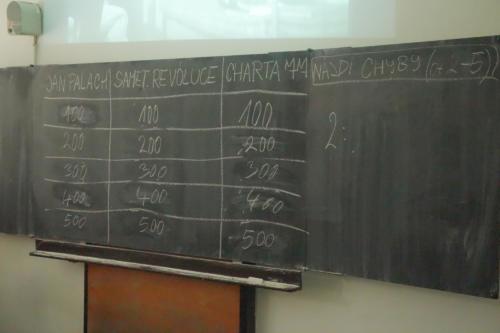 JAN PALACH SAMET. REVOLUCE CHARTA 77 NAJDI CHYBY (1 z 5)
100 100 100 2:
200 200 200
300 300 300
400 400 400
500 500 500